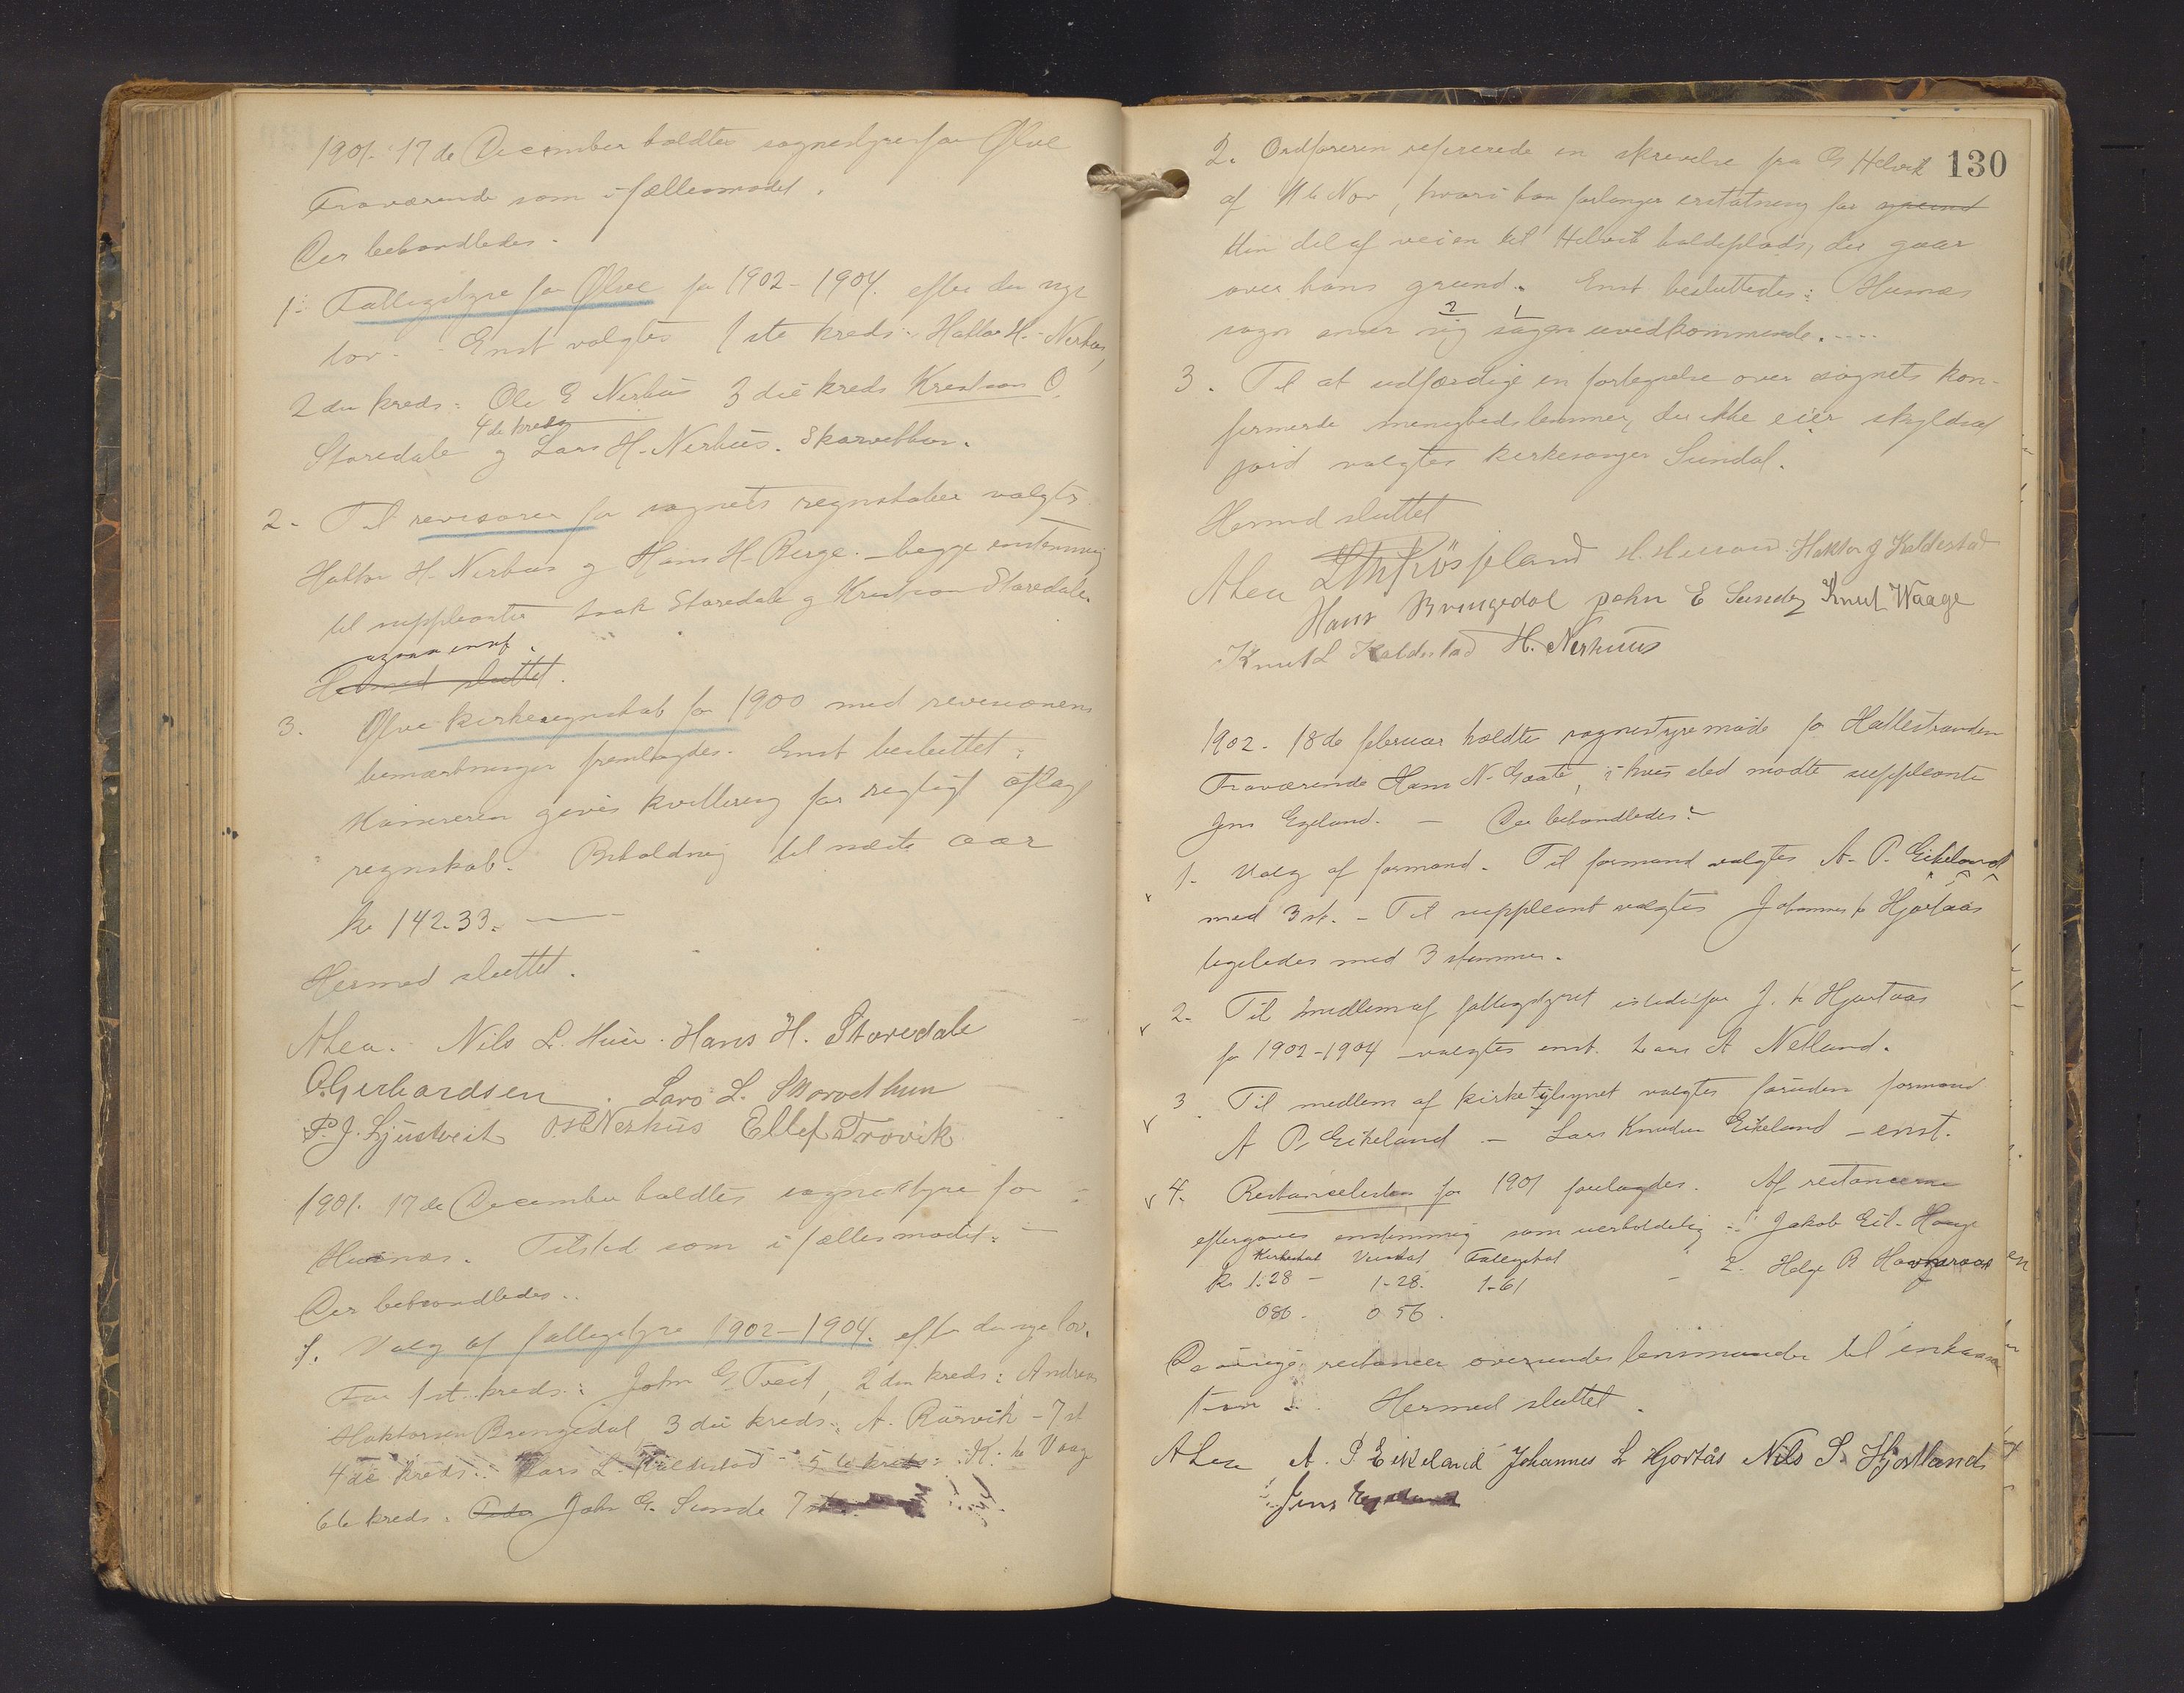 1901. 17de December holdtes sognestyre for Ølve
Fraværende som i fællesmødet.
Der behandledes.
1. Fattigstyre for Ølve for 1902-1904. efter den nye
lov. - Enst valgtes 1ste kreds: Haktor H. Nerhus,
2den kreds: Ole E Nerhus 3die kreds Kristian O.
4de kreds
Storedale og Lars H. Nerhus. Skarvethun.
2. Til revisorer for sognets regnskaber valgtes
Haktor H. Nerhus og Hans H. Berge. - begge enstemmig
til suppleanter Isak Storedale og Kristian Storedale.
ogsaa enst.
Hermed sluttet.
3. Ølve kirkeregnskab for 1900 med revisionens
bemærkninger fremlagdes. Enst besluttet:
Kæmneren gives kvittering for rigtigt aflagt
regnskab. Beholdning til næste aar
kr 142.33.
Hermed sluttet.
ALea. Nils L. Huse. Hans H. Storedale
O.Gerhardsen. Lars L. Skorvethun
P. J. Ljustveit O.H.Nerhus Ellef Trovik
1901. 17de December holdtes sognestyre for
Husnæs. Tilsted som i fællesmødet:
Der behandledes..
1. Valg af fattigstyre 1902-1904. efter den nye lov.
For 1st. kreds: John G Tveit, 2den kreds: Andreas
Haktorsen Brengedal 3die kreds: A. Rørvik - 7 st
4de kreds: Lars L. Kaldestad - 5te kreds: K. L. Vaage
6te kreds. Peder John E. Sunde 7 st.
130
2. Ordføreren refererede en skrivelse fra G Helvik
af 11te Nov, hvori han forlanger erstatning for grund
den del af veien til Helvik holdeplads, der gaar
over hans grund. Enst besluttedes: Husnæs
2 1
sogn anser sig sagen uvedkommende. ....
3. Til at udfærdige en fortegnelse over sognets kon-
firmerte menighedslemmer, der ikke eier skyldsat
jord valgtes kirkesanger Sundal.
Hermed sluttet
ALea Haktor J Kaldestad
Hans Brengedal John E Sunde Knut Waage
Knut L Kaldestad H. Nerhuus
1902. 18de februar holdtes sognestyremøde for Hatlestranden
Fraværende Hans N. Gaate, i hvis sted mødte suppleanten
Jens Egeland. - Der behandledes:
1. Valg af formand. Til formand valgtes A. P. Eikeland
med 3 st. - Til suppleant valgtes Johannes L Hjortaas
ligeledes med 3 stemmer.
2. Til medlem af fattigstyret istedetfor J. L Hjortaas
for 1902-1904 valgtes enst. Lars A Netland.
3. Til medlem af kirketilsynet valgtes foruden formand
A P. Eikeland - Lars Knudsen Eikeland - enst.
4. Restancelisten for 1901 forelagdes. Af restancerne
eftergaves enstemmig som uerholdelig: Jakob Eil. Hauge
Kirkeskat Veiskat Fattigskat
kr 1.28 - 1-28. 1-61 2. Helge B
086. 0 56.
De øvrige restancer oversendes lensmanden til inkassa-
tion. Hermed sluttet.
ALea A. P Eikeland Johannes L Hjortås Nils S. Hjortland
Jens Egeland